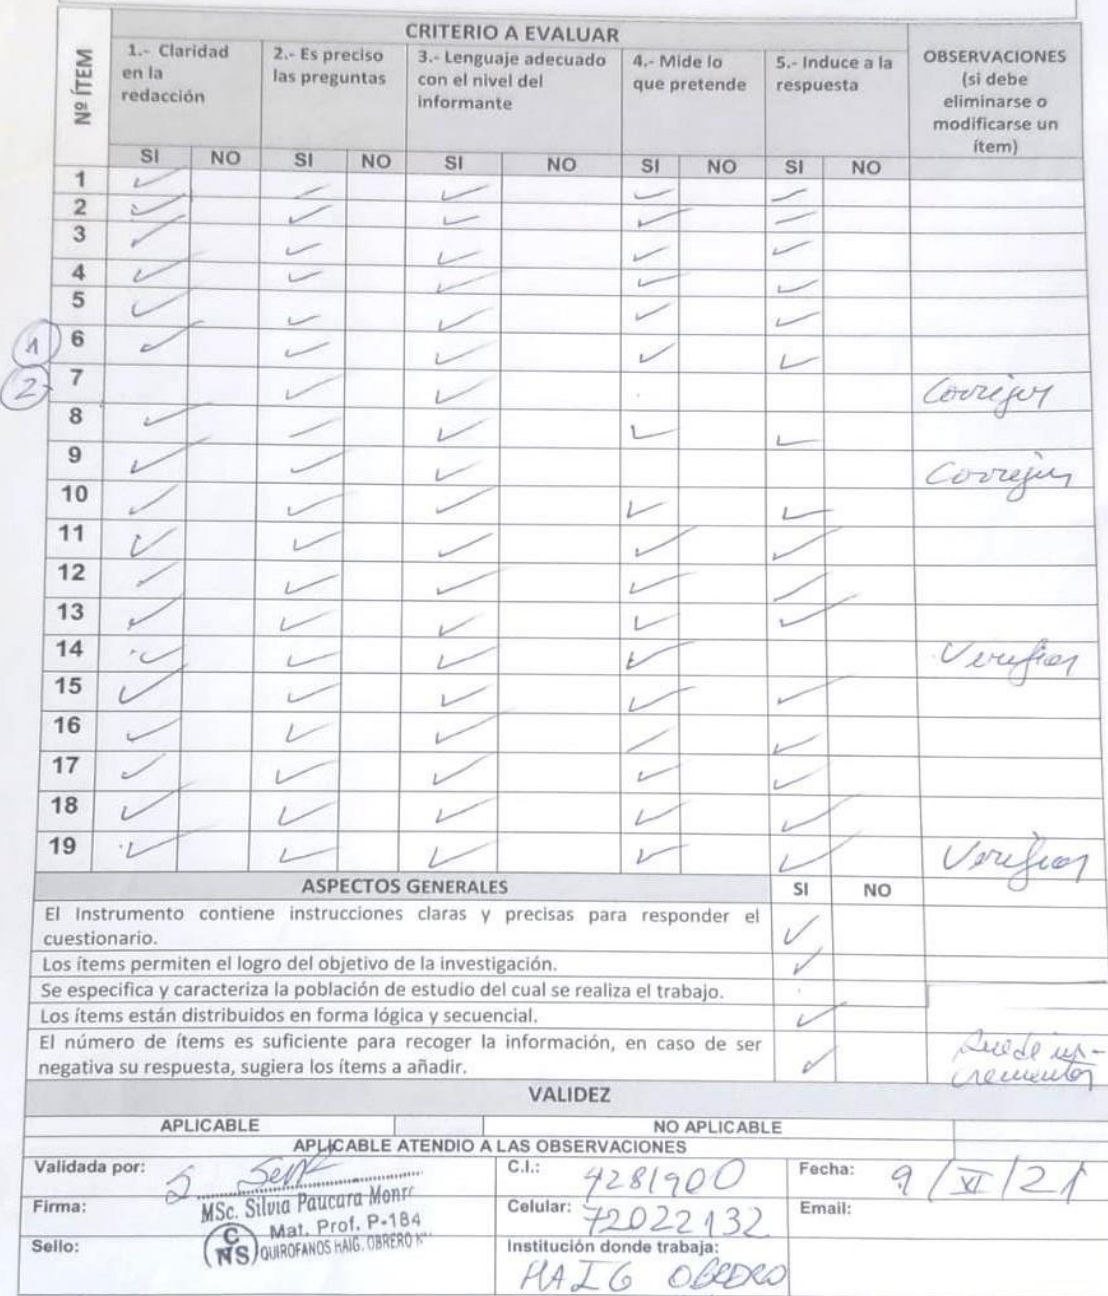 CRITERIO A EVALUAR
Nº ÍTEM
1.- Claridad en la redacción
2.- Es preciso las preguntas
3.- Lenguaje adecuado con el nivel del informante
4.- Mide lo que pretende
5.- Induce a la respuesta
OBSERVACIONES (si debe eliminarse o modificarse un ítem)
SI NO SI NO SI NO SI NO SI NO
1 ✓ ✓ ✓ ✓ ✓
2 ✓ ✓ ✓ ✓ ✓
3 ✓ ✓ ✓ ✓ ✓
4 ✓ ✓ ✓ ✓ ✓
5 ✓ ✓ ✓ ✓ ✓
1 6 ✓ ✓ ✓ ✓ ✓
2 7 ✓ ✓ Corregir
8 ✓ ✓ ✓ ✓ ✓
9 ✓ ✓ ✓ Corregir
10 ✓ ✓ ✓ ✓ ✓
11 ✓ ✓ ✓ ✓ ✓
12 ✓ ✓ ✓ ✓ ✓
13 ✓ ✓ ✓ ✓ ✓
14 ✓ ✓ ✓ ✓ Verificar
15 ✓ ✓ ✓ ✓ ✓
16 ✓ ✓ ✓ ✓ ✓
17 ✓ ✓ ✓ ✓ ✓
18 ✓ ✓ ✓ ✓ ✓
19 ✓ ✓ ✓ ✓ ✓ Verificar
ASPECTOS GENERALES SI NO
El Instrumento contiene instrucciones claras y precisas para responder el
cuestionario. ✓
Los ítems permiten el logro del objetivo de la investigación. ✓
Se especifica y caracteriza la población de estudio del cual se realiza el trabajo.
Los ítems están distribuidos en forma lógica y secuencial. ✓
El número de ítems es suficiente para recoger la información, en caso de ser
negativa su respuesta, sugiera los ítems a añadir. ✓
VALIDEZ
APLICABLE NO APLICABLE
APLICABLE ATENDIO A LAS OBSERVACIONES
Validada por: C.I.: 4281900 Fecha: 9/XI/21
Firma: MSc. Silvia Paucara Celular: 72022132 Email:
Mat. Prof. P-184
Sello: CNS QUIROFANOS HAIG. OBRERO Institución donde trabaja:
HAIG OBRERO